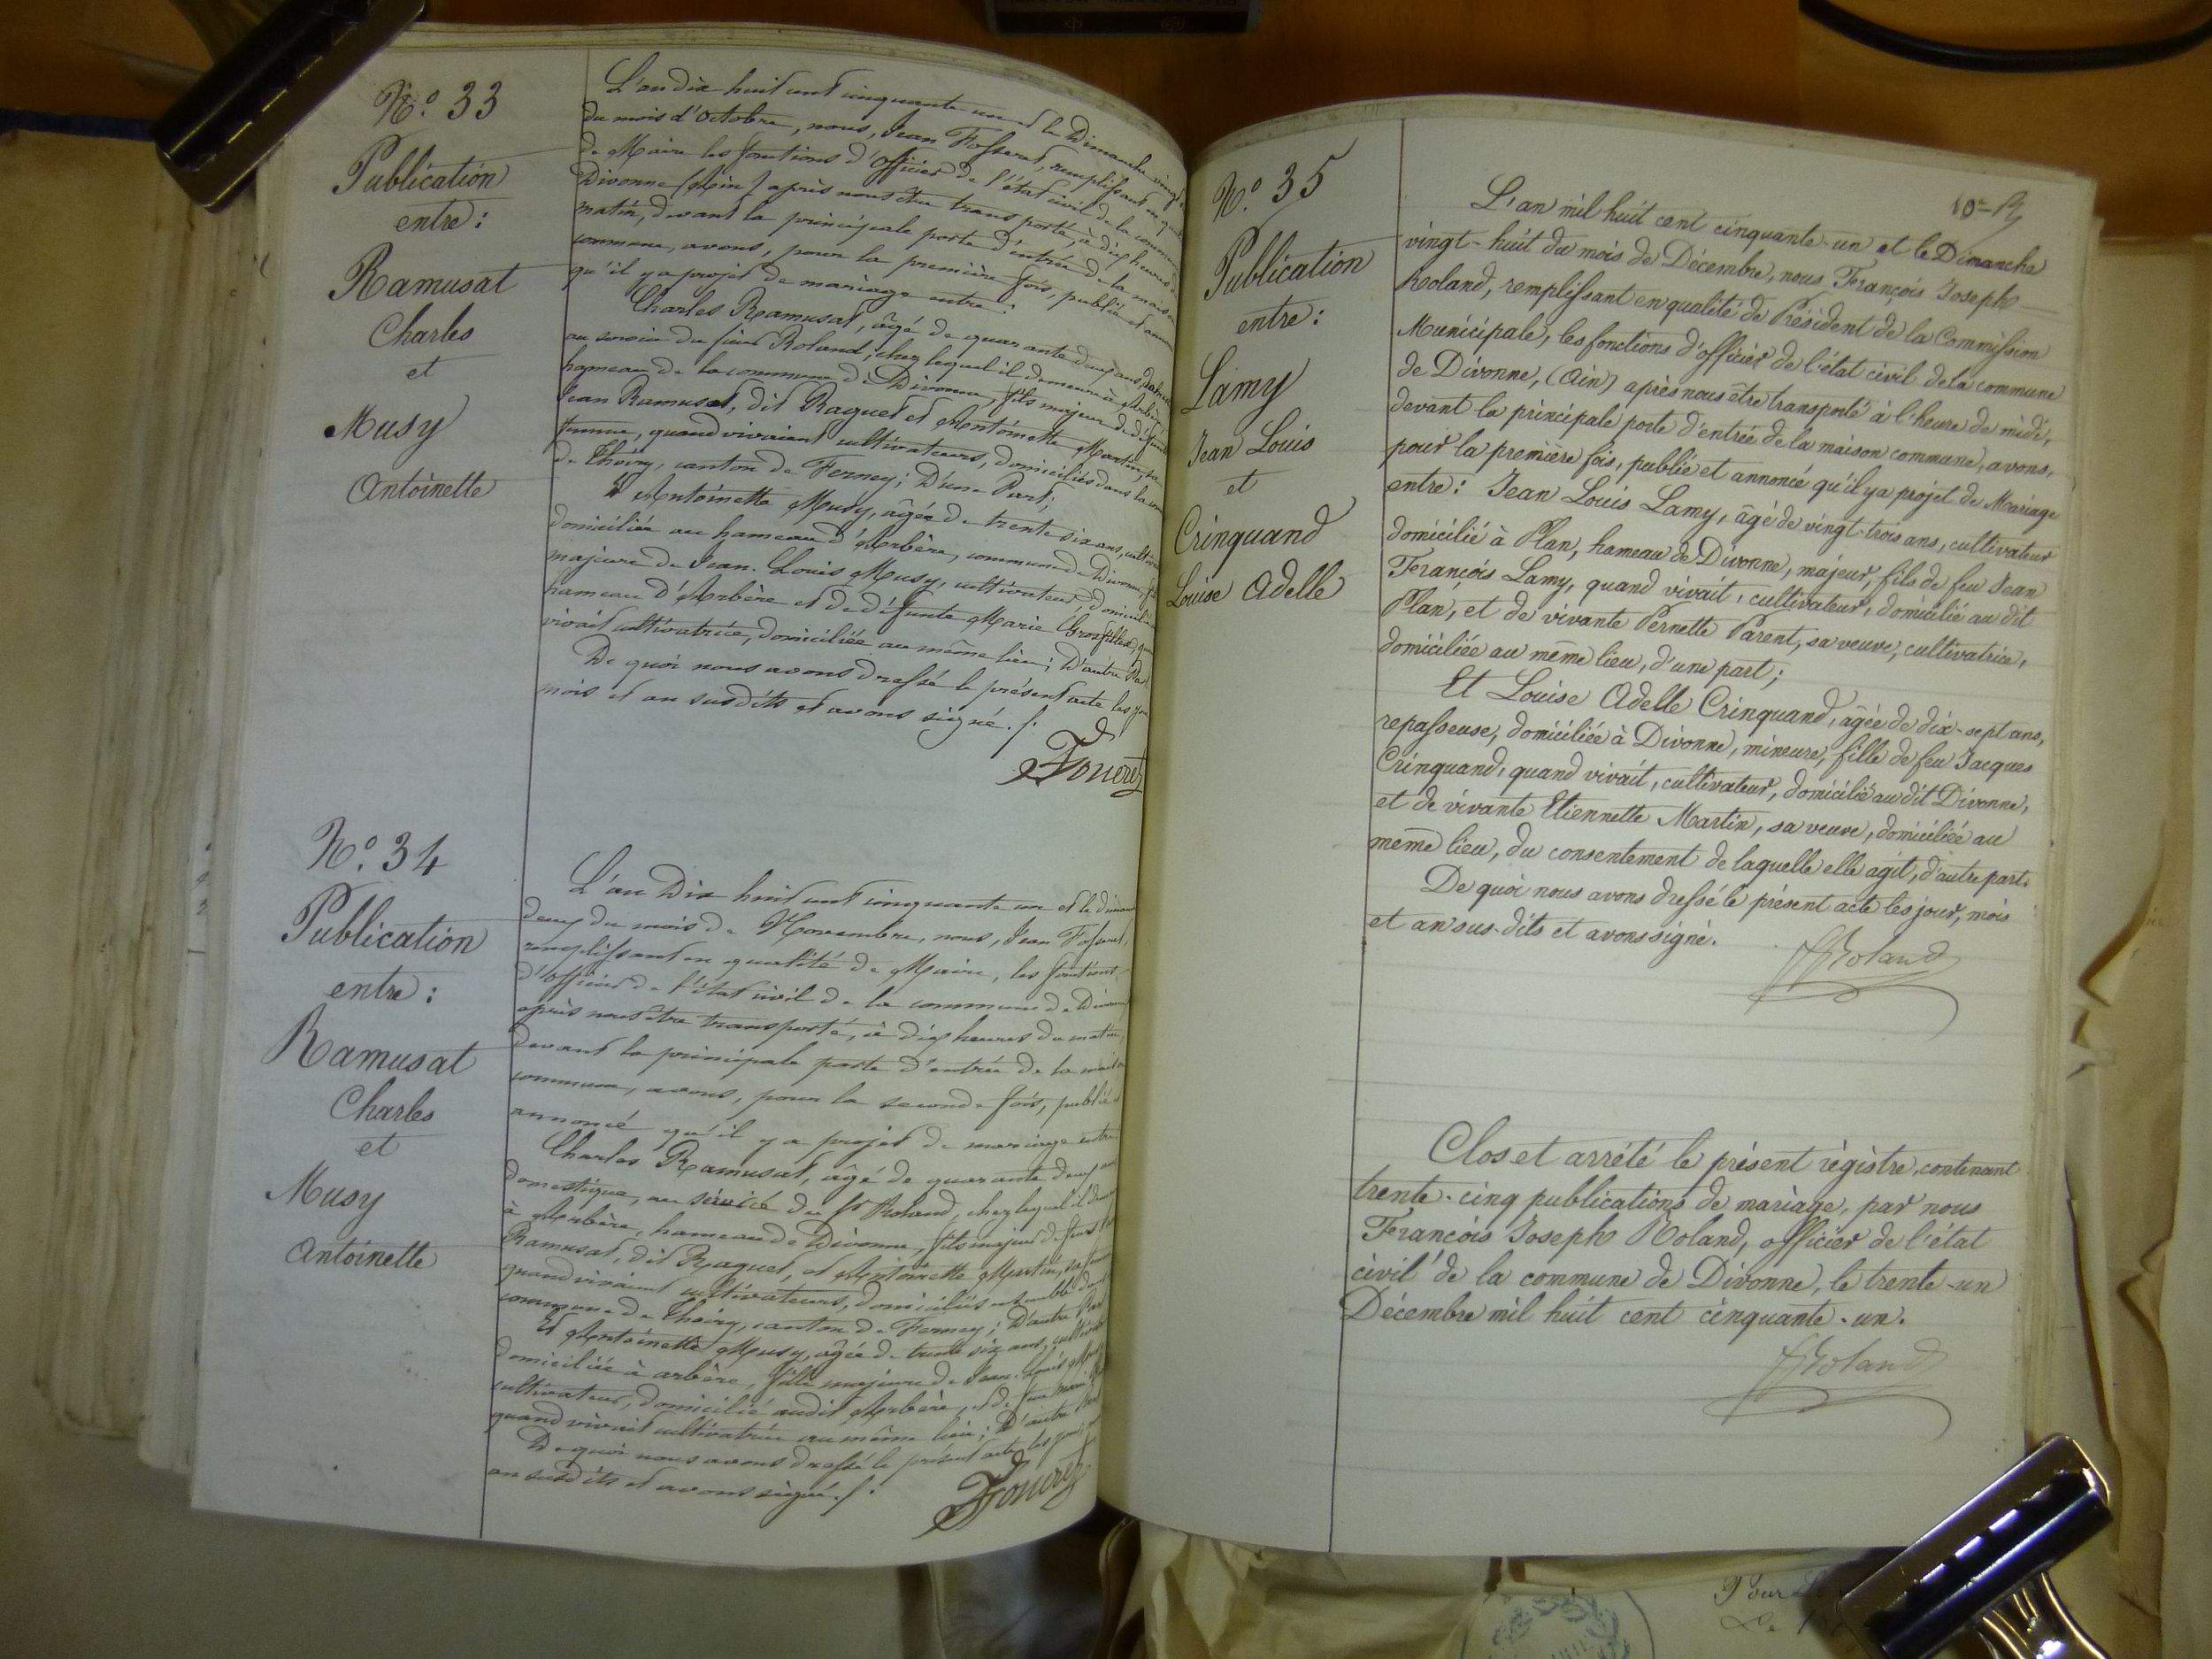 N.° 33
Publication
entre :
Ramusat
Charles
et
Musy
Antoinette
L'an dix huit cent cinquante un et le Dimanche vingt
du mois d'Octobre, nous, Jean Fosseret, remplissant en
de Maire les fonctions d'officier de l'état civil de la commune
Divonne (Ain) après nous être transporté, à dix heures du
matin, devant la principale porte d'entrée de la maison
commune, avons, pour la première fois, publié et annoncé
qu'il y a projet de mariage entre :
Charles Ramusat, âgé de quarante deux ans,
au service du sieur Roland, chez lequel il demeure à Arbère
hameau de la commune de Divonne, fils majeur de défunts
Jean Ramusat, dit Raquet et Antoinette Martin, sa
femme, quand vivaient cultivateurs, domiciliés dans la
de Thoiry, canton de Ferney ; D'une Part ;
Et Antoinette Musy, âgée de trente six ans,
domiciliée au hameau d'Arbère, commune de Divonne,
majeure de Jean-Louis Musy, cultivateur, domicilié
hameau d'Arbère et de défunte Marie Grosfillex,
vivait cultivatrice, domiciliée au même lieu ; D'autre Part
De quoi nous avons dressé le présent acte les
mois et an susdits et avons signé ./.
N.° 34
Publication
entre :
Ramusat
Charles
et
Musy
Antoinette
L'an Dix huit cent cinquante un et le
deux du mois de Novembre, nous, Jean Fosseret,
remplissant en qualité de Maire, les fonctions
d'officier de l'état civil de la commune de Divonne
après nous être transporté, à dix heures du matin,
devant la principale porte d'entrée de la maison
commune, avons, pour la seconde fois, publié et
annoncé qu'il y a projet de mariage entre
Charles Ramusat, âgé de quarante deux ans
domestique, au service du Sr Roland, chez lequel il
à Arbère, hameau de Divonne, fils majeur de feus
Ramusat, dit Raquet, et Antoinette Martin, sa femme
quand vivaient cultivateurs, domiciliés ensemble dans
commune de Thoiry, canton de Ferney ; D'autre Part
Et Antoinette Musy, âgée de trente six ans,
domiciliée à arbère, fille majeure de Jean-Louis Musy
cultivateur, domicilié audit Arbère, et de feue Marie
quand vivait cultivatrice au même lieu ; D'autre Part
De quoi nous avons dressé le présent acte les jour,
an susdits et avons signé ./.
N.° 35
Publication
entre :
Lamy
Jean Louis
et
Crinquand
Louise Adelle
L'an mil huit cent cinquante-un et le Dimanche
vingt-huit du mois de Décembre, nous François Joseph
Roland, remplissant en qualité de Président de la Commission
Municipale, les fonctions d'officier de l'état civil de la commune
de Divonne, (Ain) après nous être transporté à l'heure de midi,
devant la principale porte d'entrée de la maison commune, avons,
pour la première fois, publié et annoncé qu'il y a projet de Mariage
entre : Jean Louis Lamy, âgé de vingt-trois ans, cultivateur
domicilié à Plan, hameau de Divonne, majeur, fils de feu Jean
François Lamy, quand vivait, cultivateur, domicilié au dit
Plan, et de vivante Pernette Parent, sa veuve, cultivatrice,
domiciliée au même lieu, d'une part ;
Et Louise Adelle Crinquand, âgée de dix-sept ans,
repasseuse, domiciliée à Divonne, mineure, fille de feu Jacques
Crinquand, quand vivait, cultivateur, domicilié au dit Divonne,
et de vivante Etiennette Martin, sa veuve, domiciliée au
même lieu, du consentement de laquelle elle agit, d'autre part.
De quoi nous avons dressé le présent acte les jour, mois
et an sus-dits et avons signé.
Roland
Clos et arrêté le présent règistre, contenant
trente-cinq publications de mariage, par nous
François Joseph Roland, officier de l'état
civil de la commune de Divonne, le trente-un
Décembre mil huit cent cinquante-un.
Roland